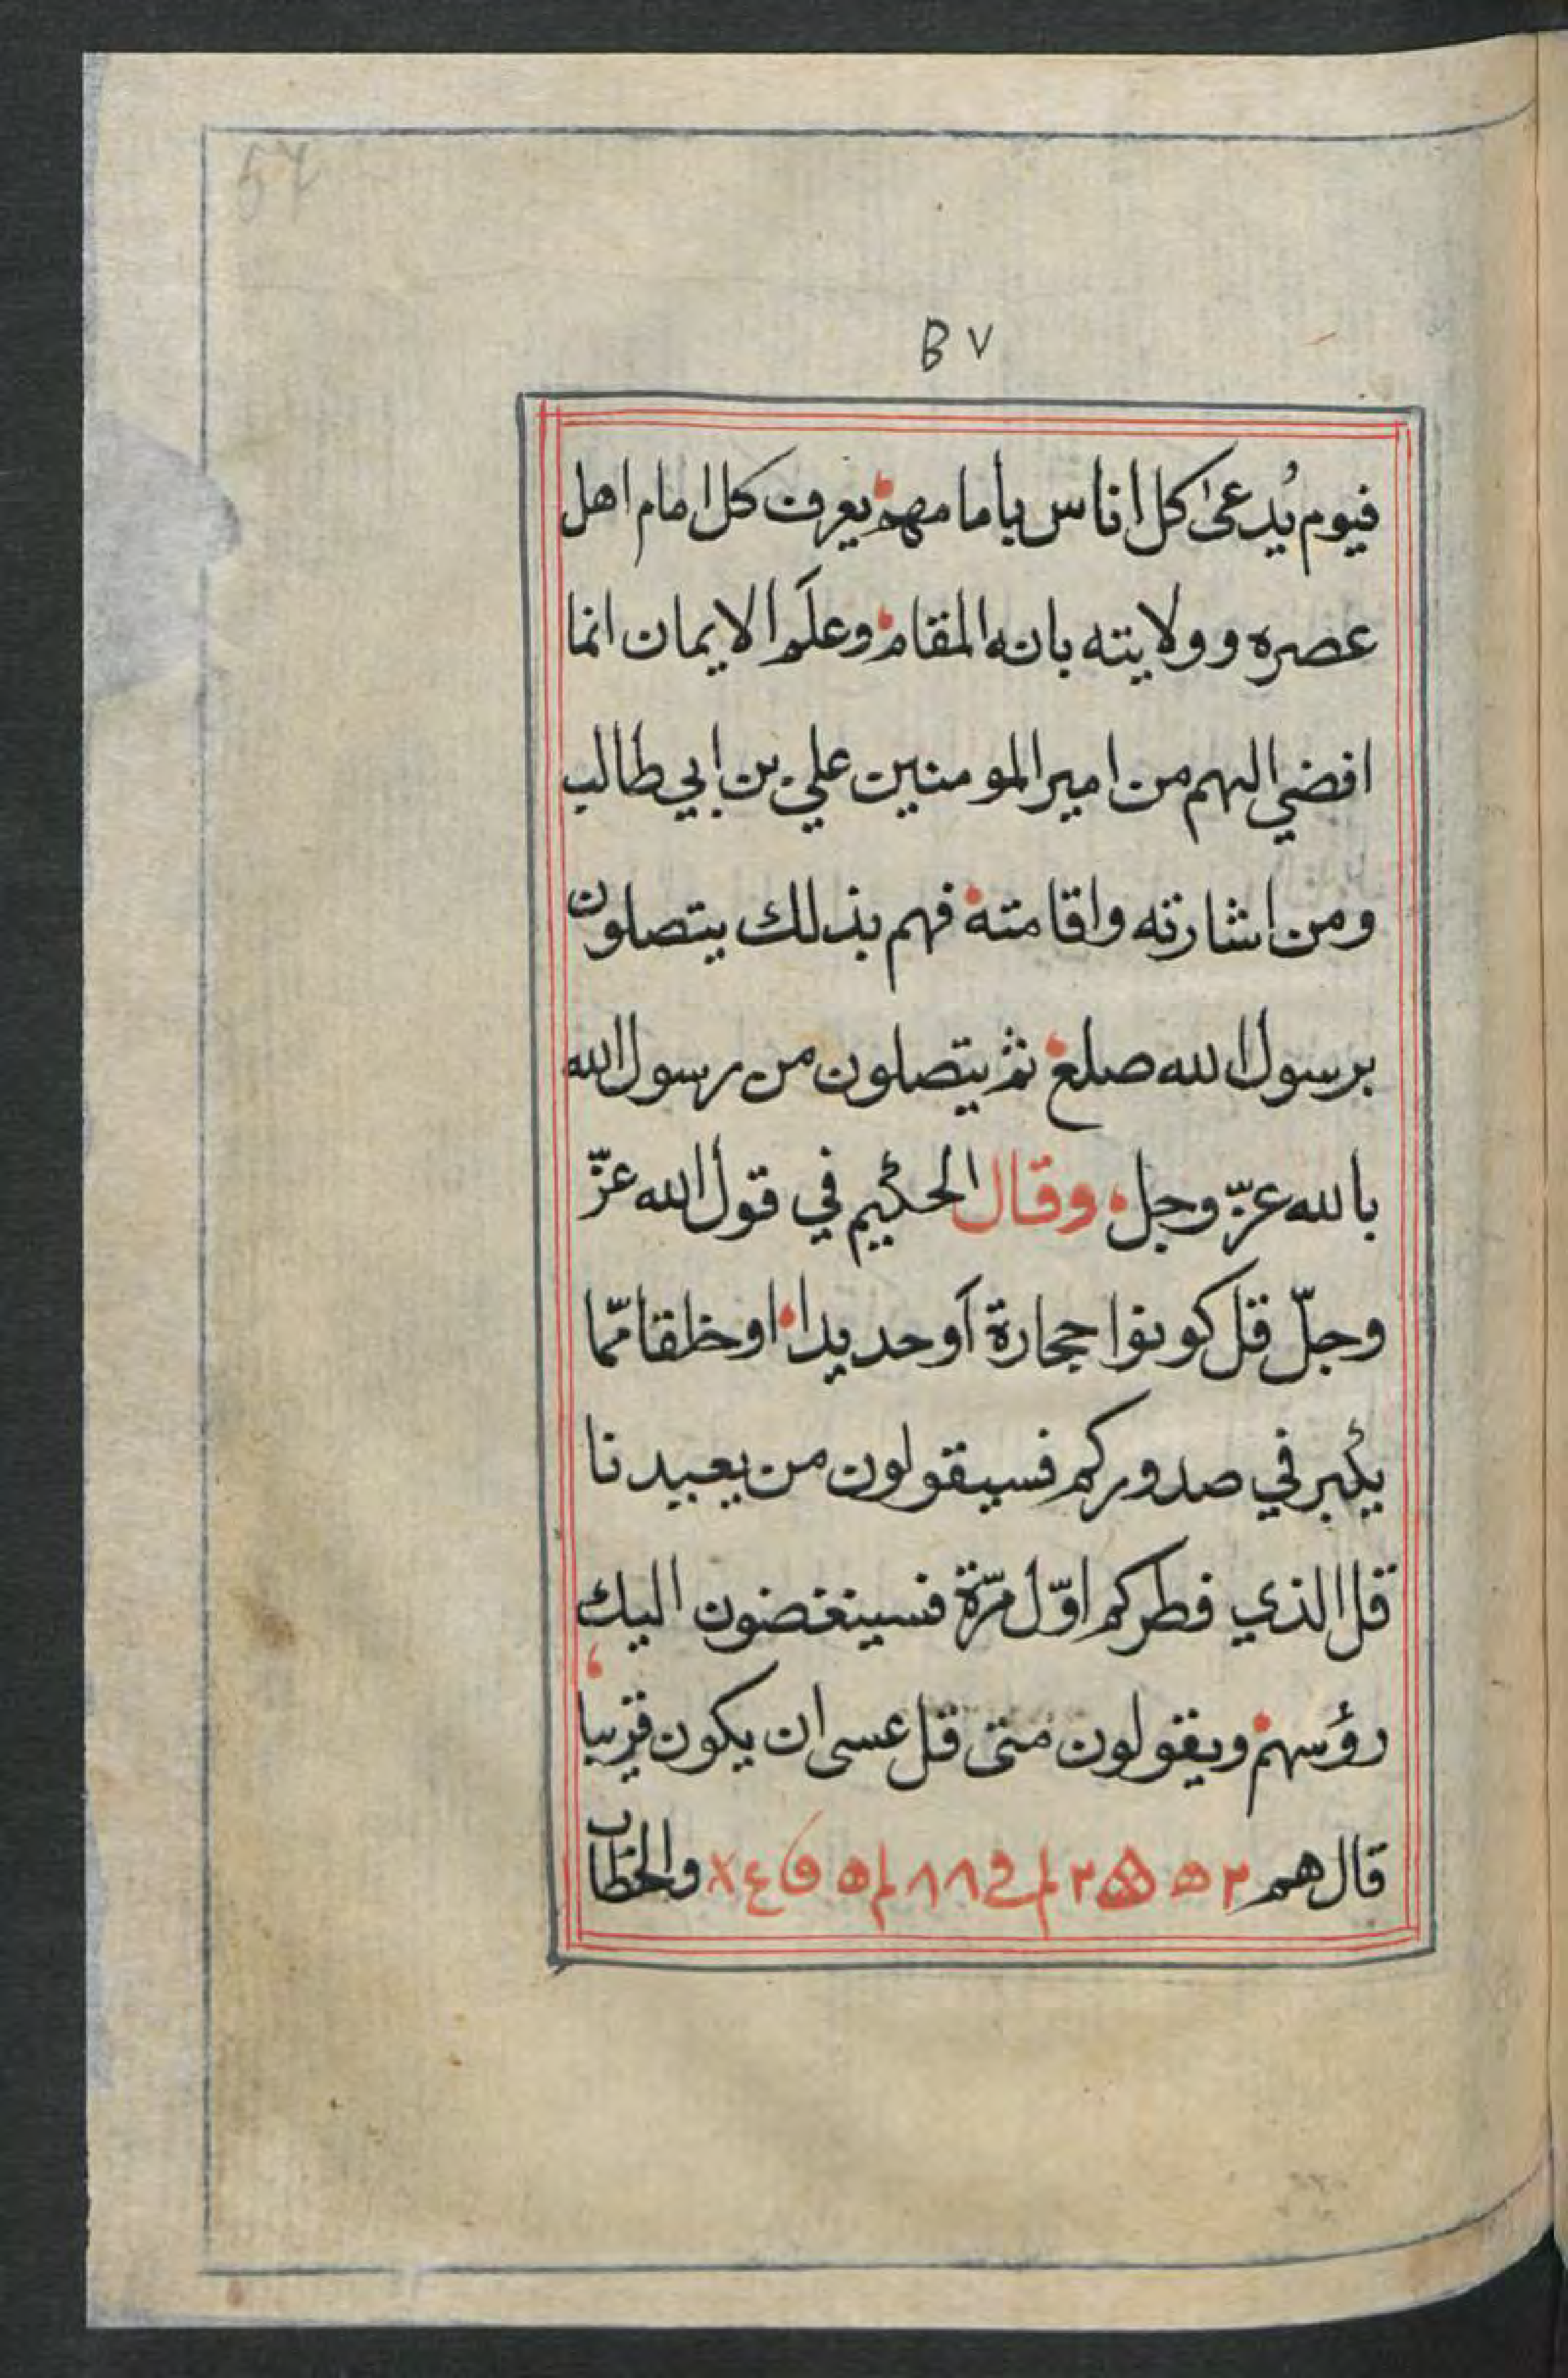 57
B ٧
فيوم يُدعىٰ كل اناس بامامهم يعرف كل امام اهل
عصره وولايته بانه المقام وعلَم الايمان انما
افضي اليهم من امير المومنين علي بن ابي طالب
ومن اشارته واقامته فهم بذلك يتصلون
برسول الله صلع ثم يتصلون من رسول الله
بالله عزّ وجل وقال الحكيم في قول الله عزّ
وجلّ قل كونوا حجارة أو حديدا او خلقا ممّا
يكبر في صدوركم فسيقولون من يعيدنا
قل الذي فطركم اوّل مرّة فسينغضون اليك
رؤسهم ويقولون متى قل عسى ان يكون قريبا
قال هم والخطاب